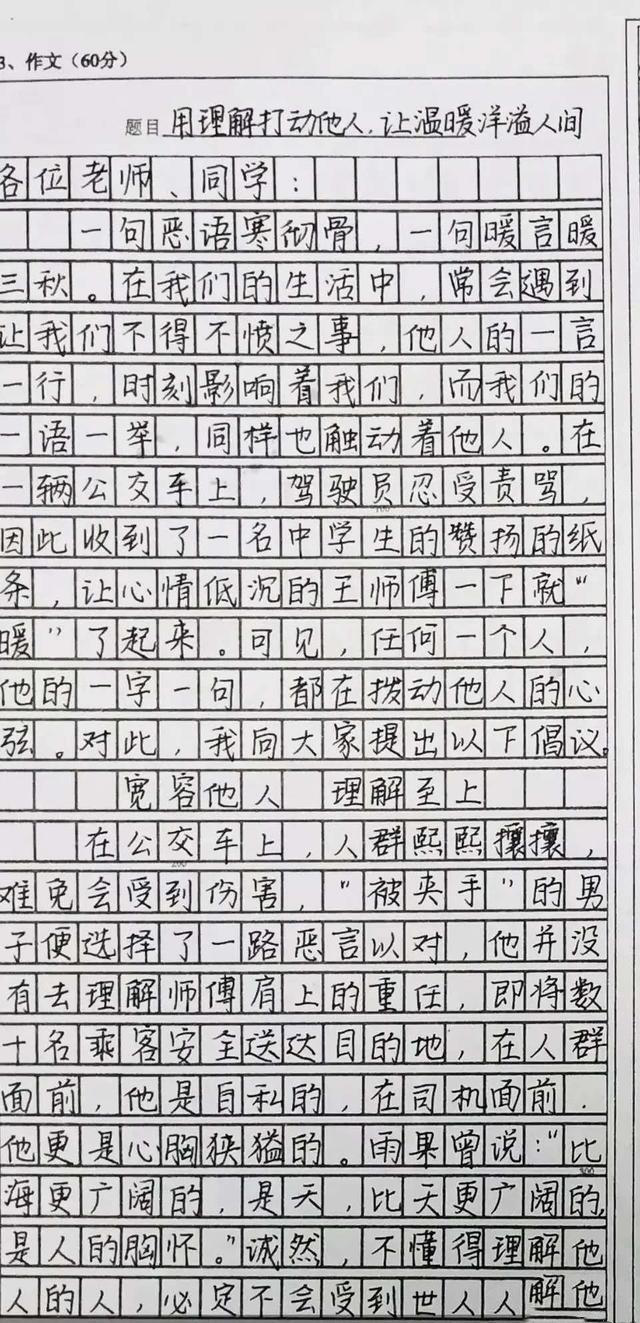 3、作文(60分)
题目 用理解打动他人,让温暖洋溢人间
各位老师、同学:
一句恶语寒彻骨,一句暖言暖
三秋。在我们的生活中,常会遇到
让我们不得不愤之事,他人的一言
一行,时刻影响着我们,而我们的
一语一举,同样也触动着他人。在
一辆公交车上,驾驶员忍受责骂,
因此收到了一名中学生的赞扬的纸
条,让心情低沉的王师傅一下就“
暖”了起来。可见,任何一个人,
他的一字一句,都在拨动他人的心
弦。对此,我向大家提出以下倡议。
宽容他人 理解至上
在公交车上,人群熙熙攘攘,
难免会受到伤害,“被夹手”的男
子便选择了一路恶言以对,他并没
有去理解师傅肩上的重任,即将数
十名乘客安全送达目的地,在人群
面前,他是自私的,在司机面前,
他更是心胸狭猛的。雨果曾说:“比
300
海更广阔的,是天,比天更广阔的,
是人的胸怀。”诚然,不懂得理解他
人的人,必定不会受到世人人解他